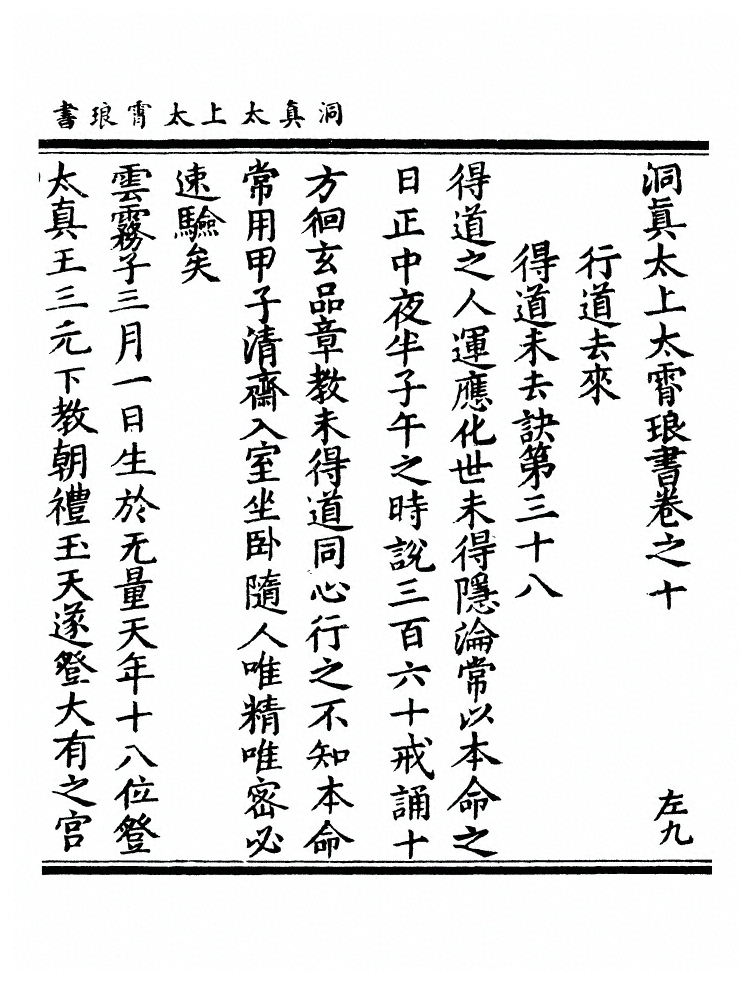 洞真太上太霄琅書
洞眞太上太霄琅書卷之十
左九
行道去來
得道未去訣第三十八
得道之人運應化世未得隱淪常以本命之
日正中夜半子午之時說三百六十戒誦十
方徊玄品章教未得道同心行之不知本命
常用甲子清齋入室坐卧隨人唯精唯密必
速驗矣
雲霧子三月一日生於无量天年十八位登
太真王三元下教朝禮玉天遂登大有之宮